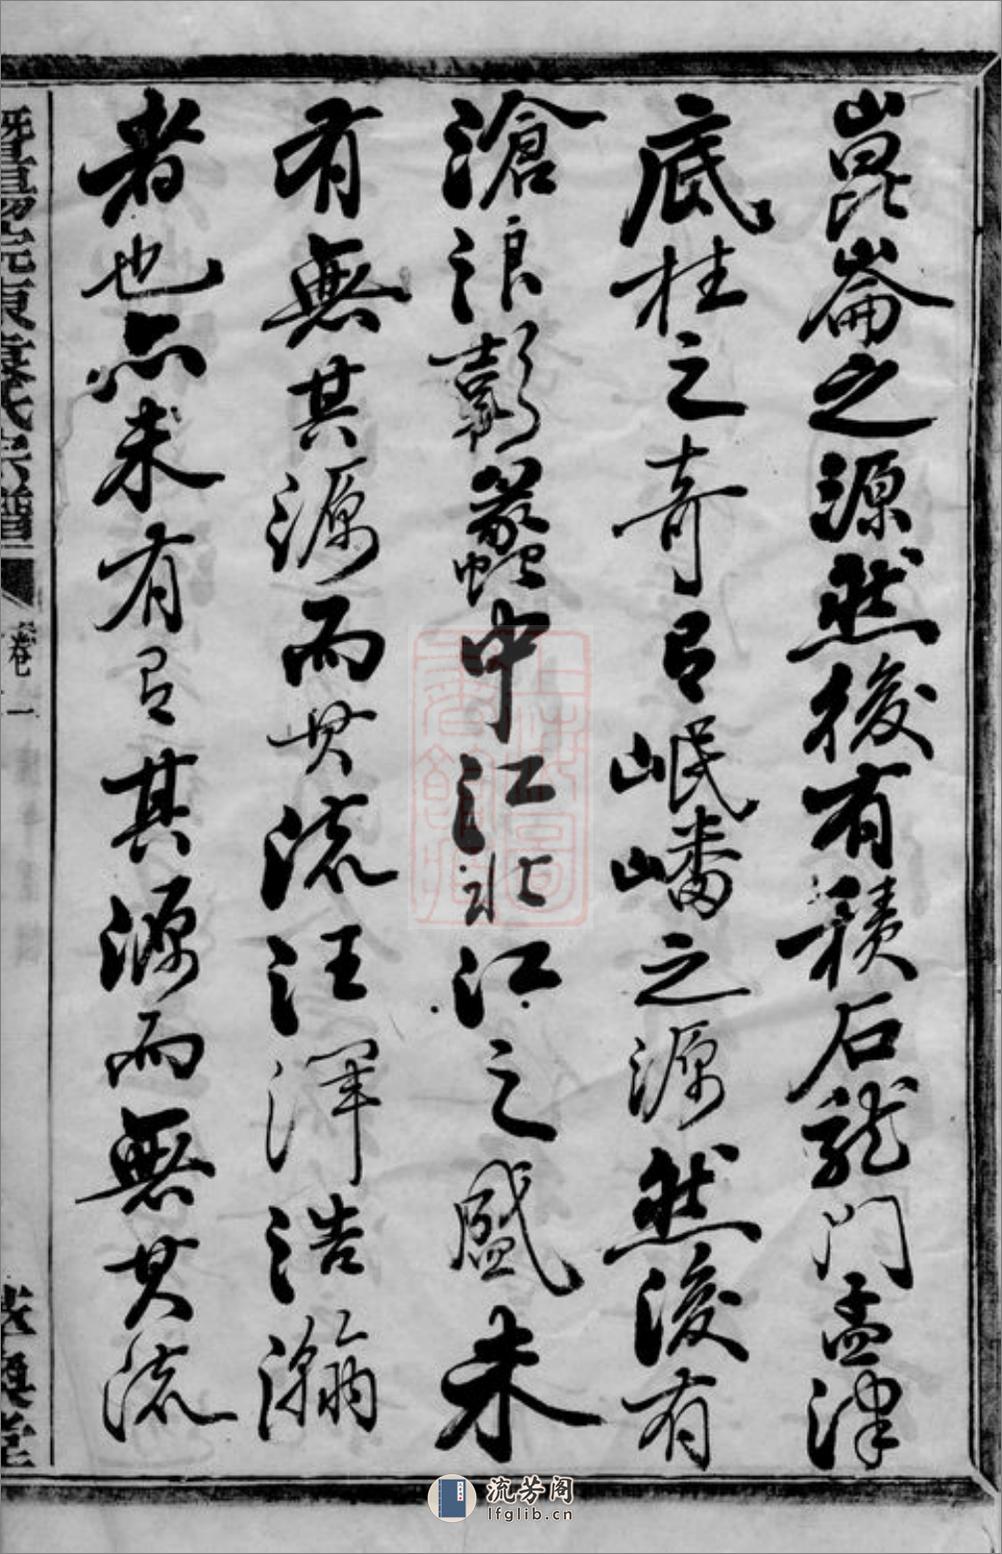 崑崙之源然後有積石龍門孟津
底柱之奇有岷嶓之源然後有
滄浪彭蠡中江北江之盛未
有無其源而其流汪渾浩瀚
者也亦未有有其源而無其流
卷一
流芳阁
lfglib.cn